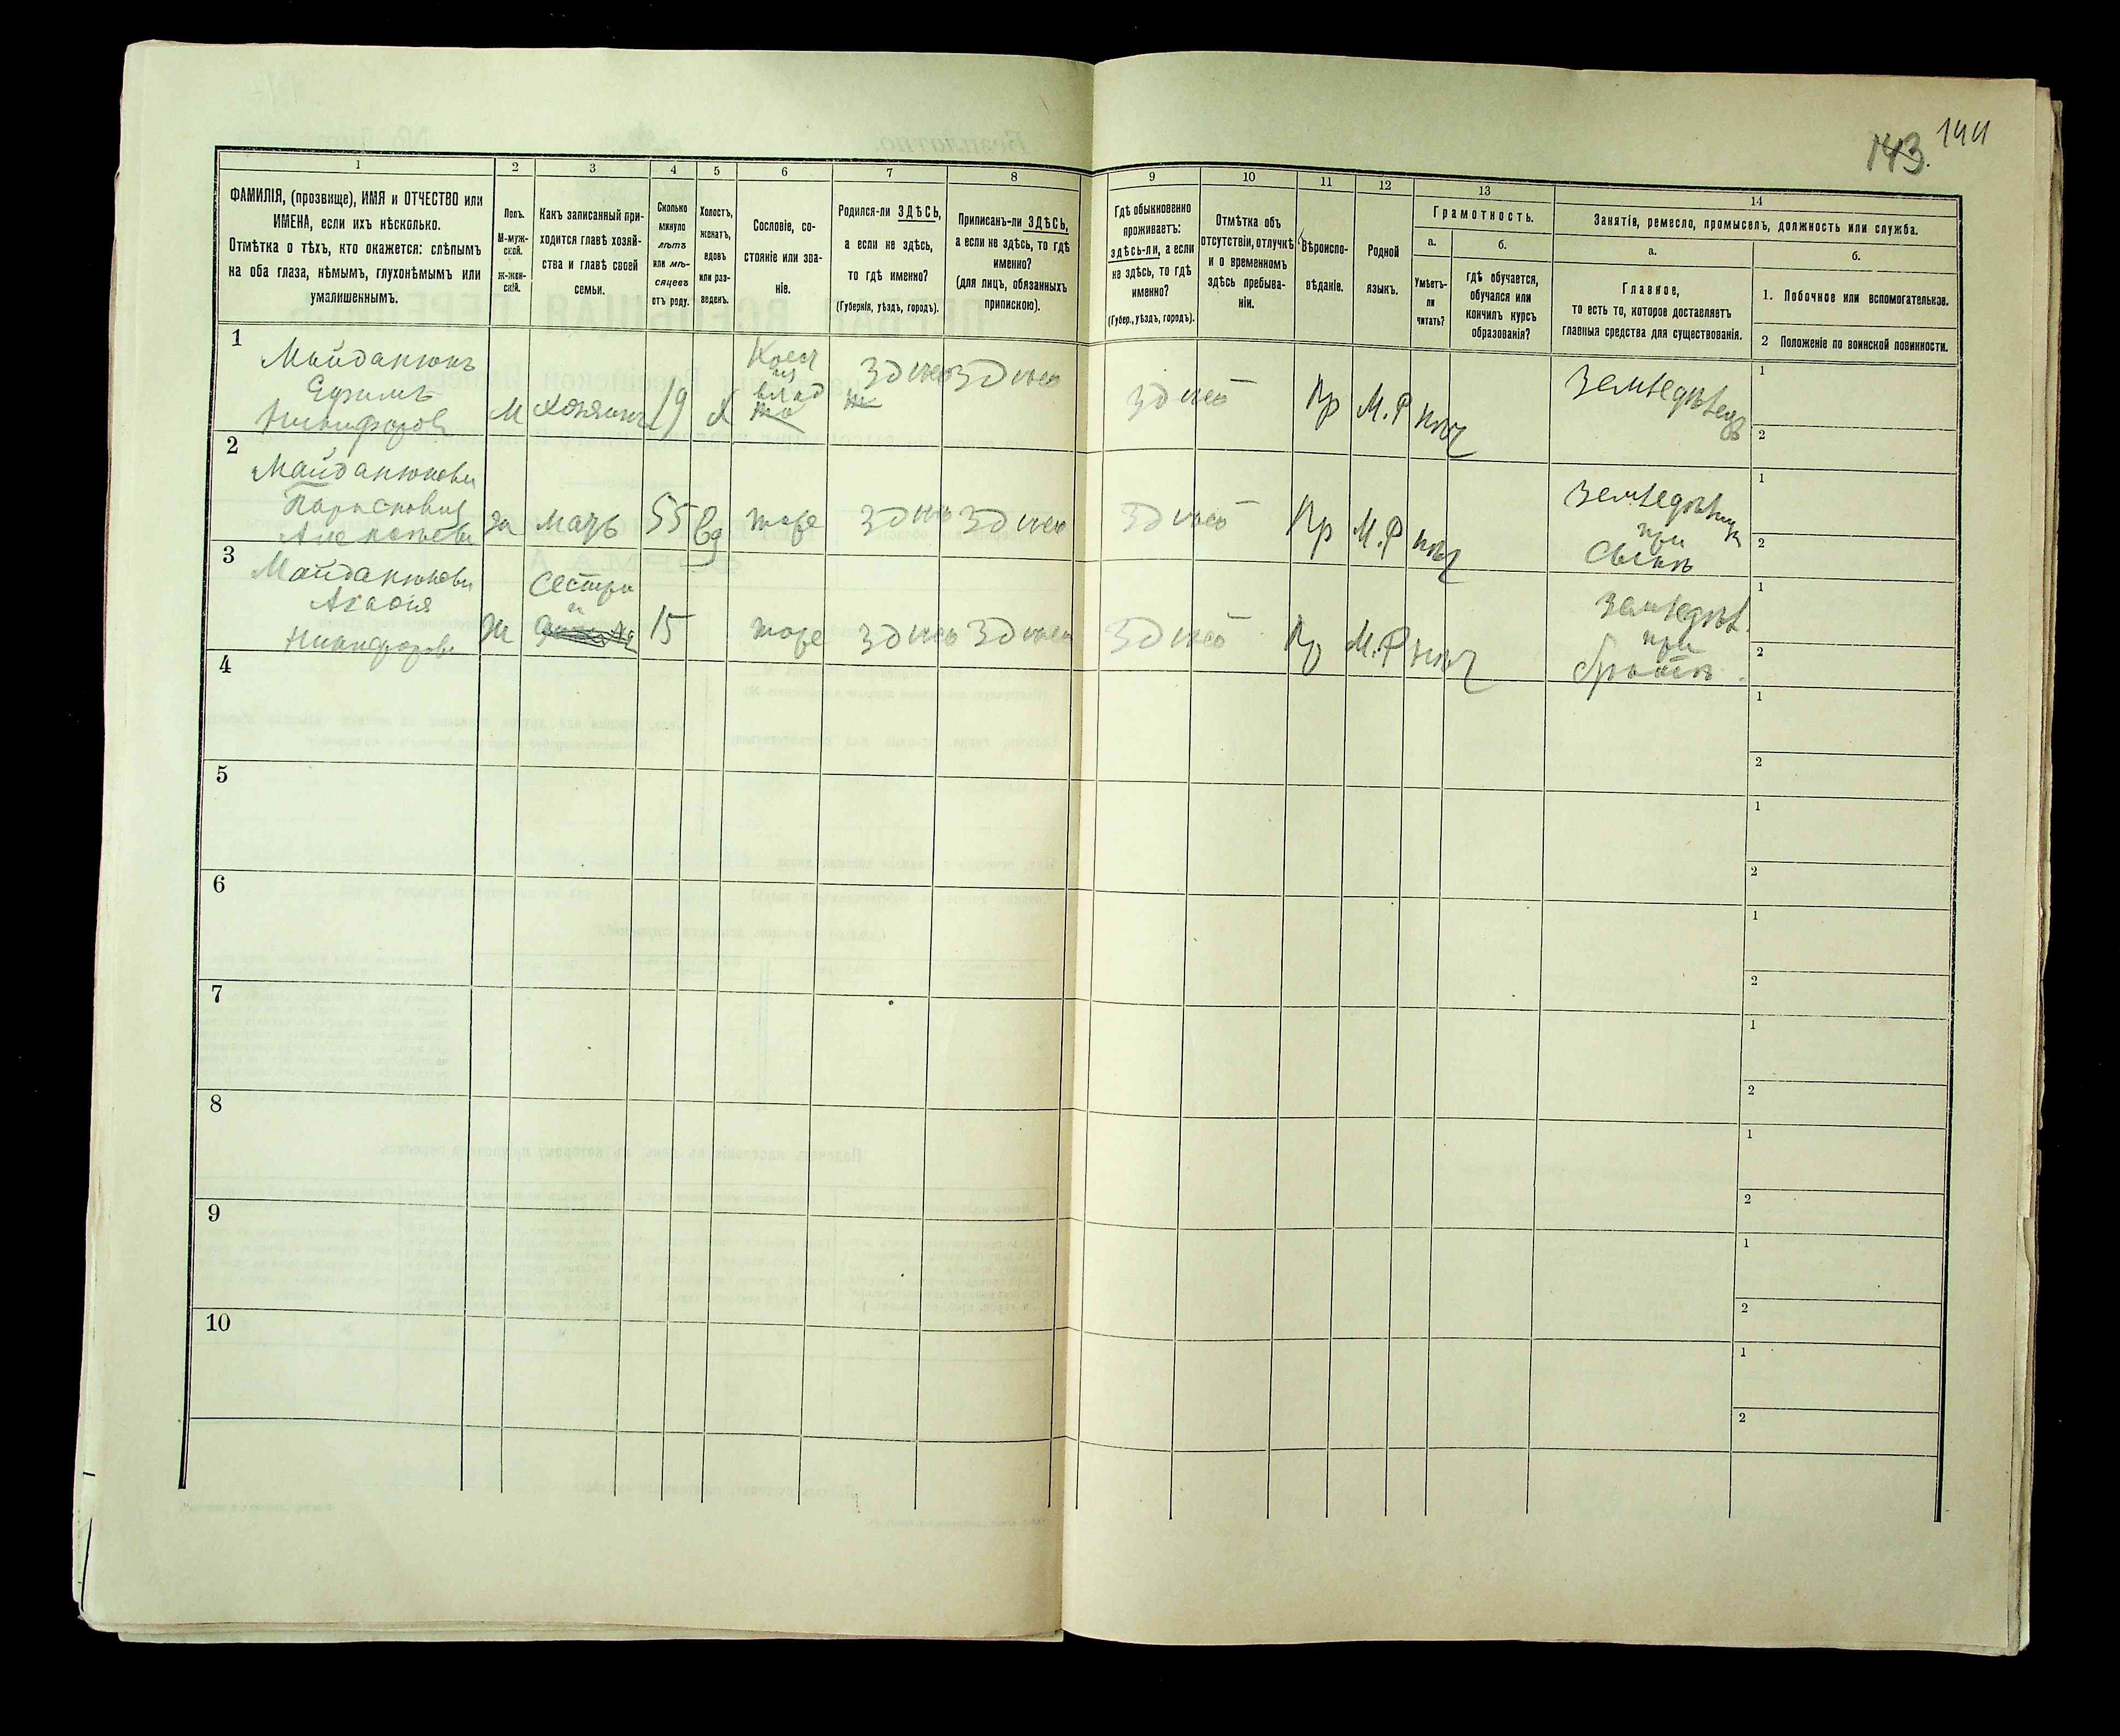 144
143.
1
2
3
4
5
6
7
8
9
10
11
12
13
14
ФАМИЛІЯ, (прозвище), ИМЯ и ОТЧЕСТВО или
ИМЕНА, если ихъ нѣсколько.
Отмѣтка о тѣхъ, кто окажется: слѣпымъ
на оба глаза, нѣмымъ, глухонѣмымъ или
умалишеннымъ.
Полъ.
М-муж-
ской.
ж-жен-
скій.
Какъ записанный при-
ходится главѣ хозяй-
ства и главѣ своей
семьи.
Сколько
минуло
лѣтъ
или мѣ-
сяцевъ
отъ роду.
Холостъ,
женатъ,
вдовъ
или раз-
веденъ.
Сословіе, со-
стояніе или зва-
ніе.
Родился-ли ЗДѢСЬ,
а если не здѣсь,
то гдѣ именно?
(Губернія, уѣздъ, городъ).
Приписанъ-ли ЗДѢСЬ,
а если не здѣсь, то гдѣ
именно?
(для лицъ, обязанныхъ
припискою).
Гдѣ обыкновенно
проживаетъ:
здѣсь-ли, а если
не здѣсь, то гдѣ
именно?
(Губер., уѣздъ, городъ).
Отмѣтка объ
отсутствіи, отлучкѣ
и о временномъ
здѣсь пребыва-
ніи.
Вѣроиспо-
вѣданіе.
Родной
языкъ.
Грамотность.
а.
Умѣетъ-
ли
читать?
б.
гдѣ обучается,
обучался или
кончилъ курсъ
образованія?
Занятіе, ремесло, промыселъ, должность или служба.
а.
Главное,
то есть то, которое доставляетъ
главныя средства для существованія.
б.
1. Побочное или вспомогательное.
2 Положеніе по воинской повинности.
1
Майданюкъ
Ефимъ
Никифоровъ
М
хозяинъ
19
Х
Крест
из
влад
здѣсь
здѣсь
здѣсь
Пр
М.Р
нѣт
Земледѣлецъ
1
2
2
Майданюкова
Парасковия
Алексѣева
Ж
мать
55
Вд
тоже
здѣсь
здѣсь
здѣсь
Пр
М.Р
нѣт
при
сынѣ
1
2
3
Майданюкова
Никифорова
Ж
Сестра
15
тоже
здѣсь
здѣсь
здѣсь
Пр
М.Р
нѣт
Земледѣл.
при
братѣ.
1
2
4
1
2
5
1
2
6
1
2
7
1
2
8
1
2
9
1
2
10
1
2